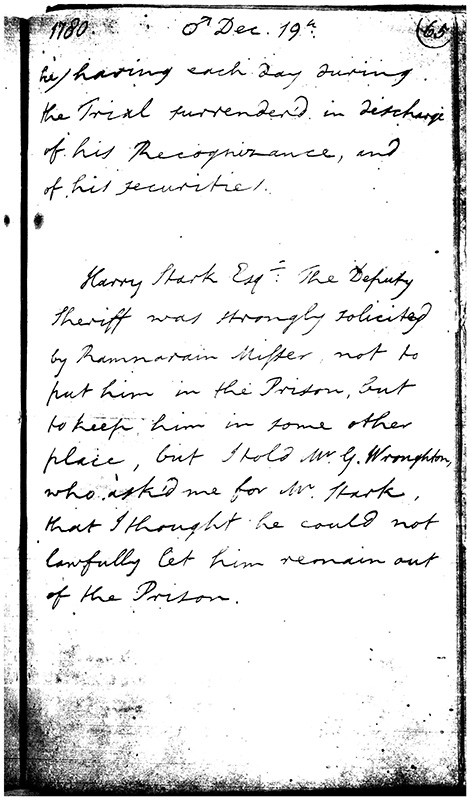 1780. ♂ Dec. 19th. (65)
he) having each day during
the Trial surrender'd in discharge
of his Recognizance, and
of his securities.
Harry Stark Esqr. The Deputy
Sheriff was strongly solicited
by Ramnarain Misser, not to
put him in the Prison, but
to keep him in some other
place, but I told Mr. G. Wroughton,
who ask'd me for Mr. Stark,
that I thought he could not
lawfully let him remain out
of the Prison.